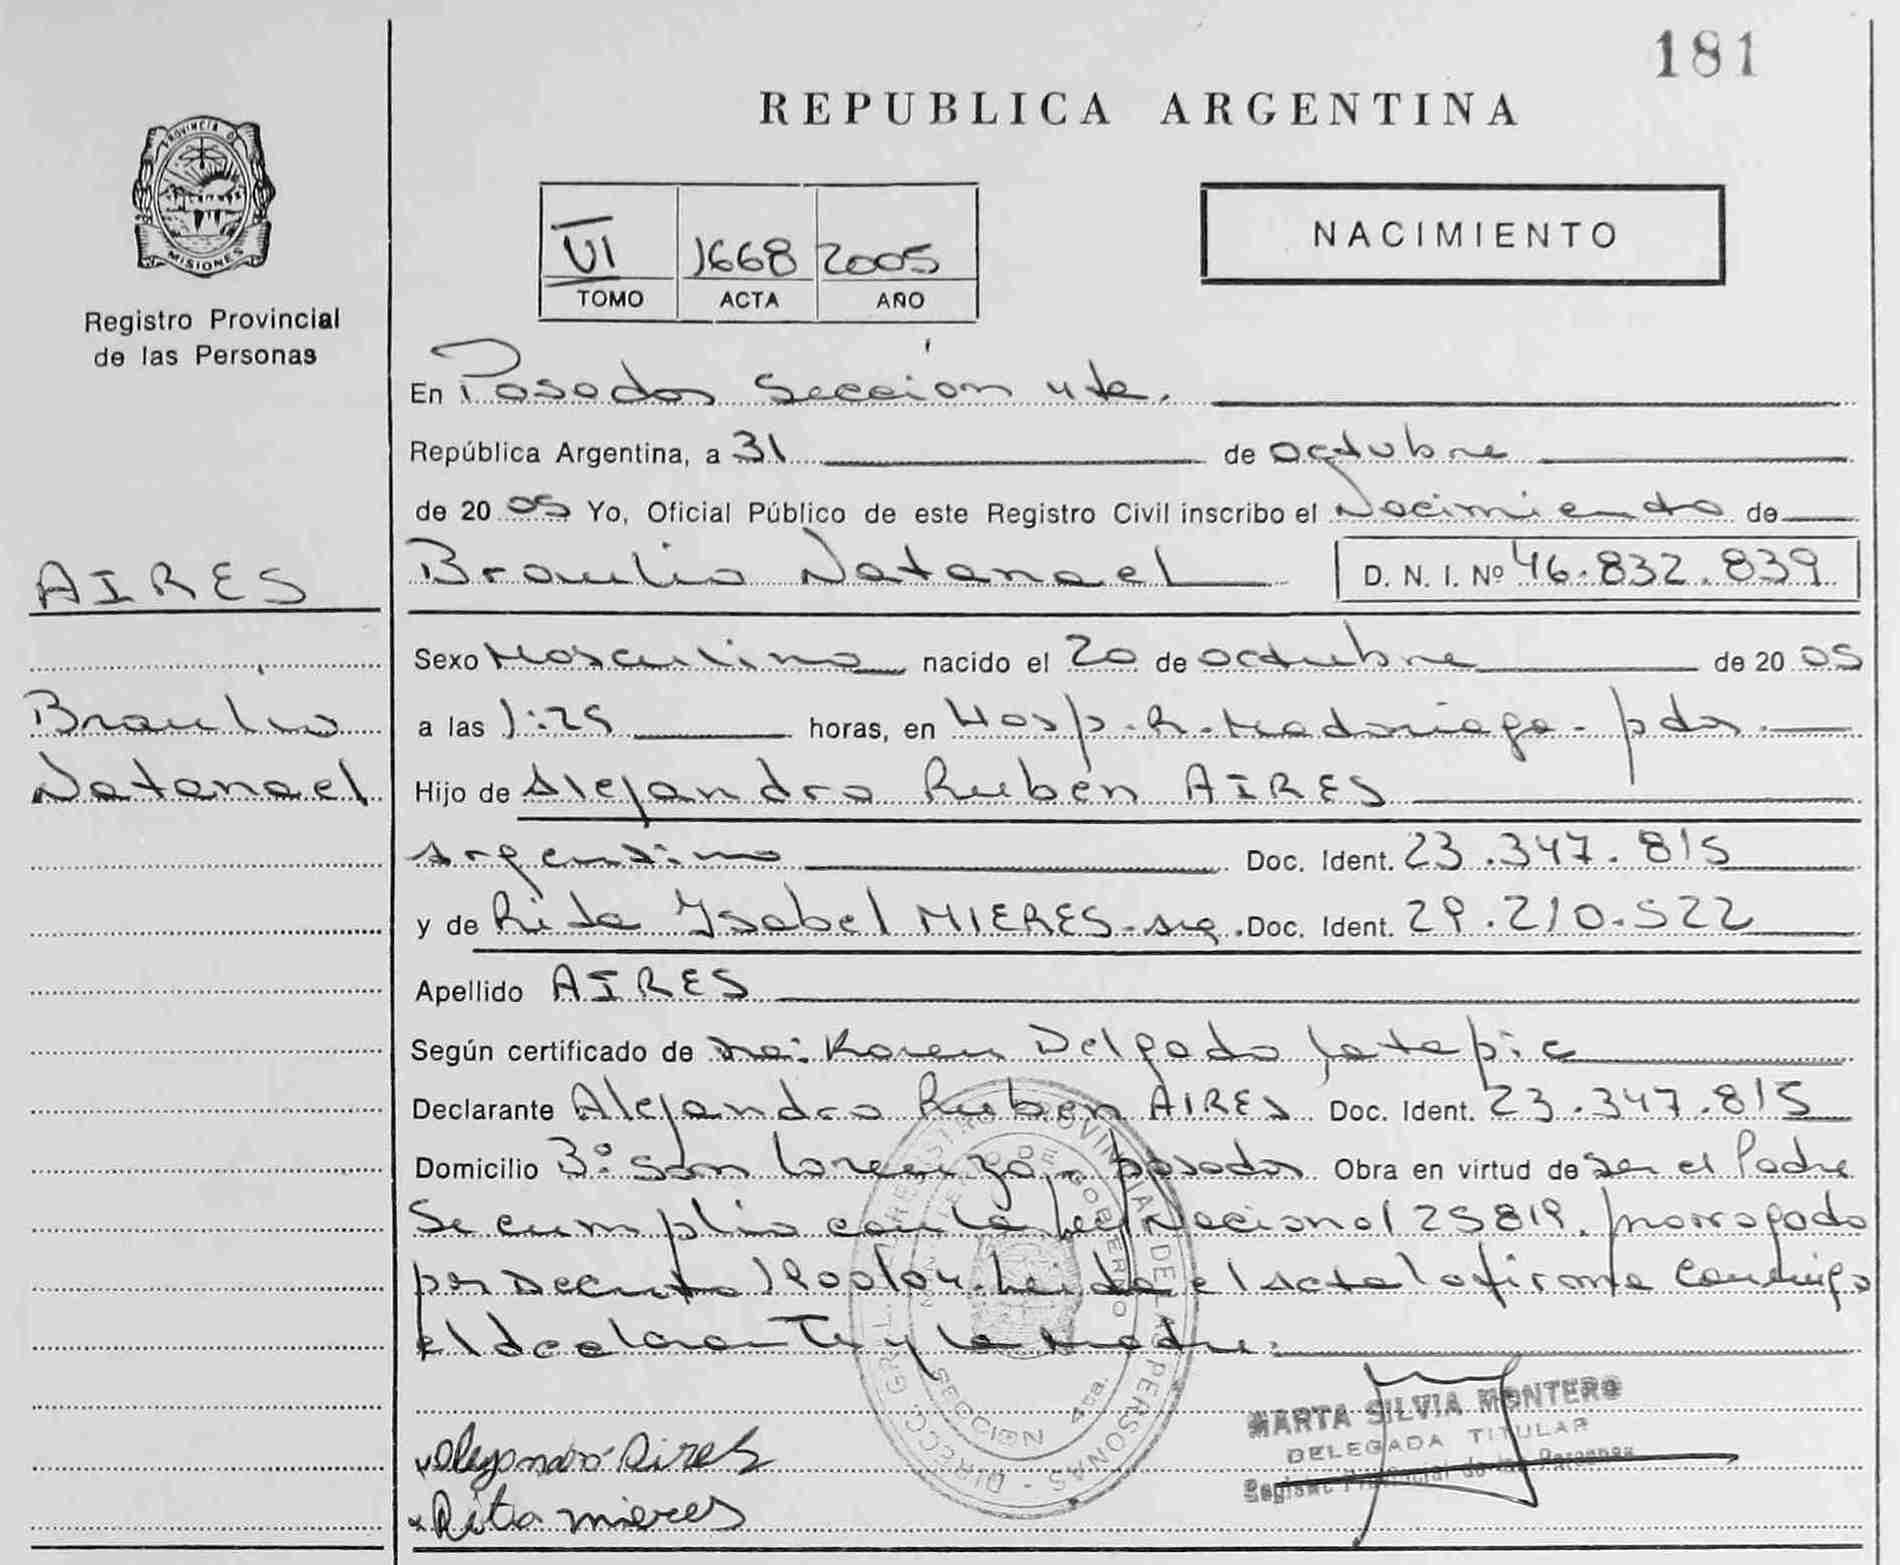 181
REPUBLICA ARGENTINA
PROVINCIA DE
MISIONES
Registro Provincial
de las Personas
VI 1668 2005
TOMO ACTA AÑO
NACIMIENTO
En Posadas Sección 4ta.
República Argentina, a 31 de octubre
de 2005 Yo, Oficial Público de este Registro Civil inscribo el Nacimiento de
Braulio Natanael D. N. I. Nº 46.832.839
AIRES
Braulio
Natanael
Sexo Masculino nacido el 20 de octubre de 2005
a las 1:25 horas, en Hosp. R. Madariaga - pdas.
Hijo de Alejandro Rubén AIRES
argentino Doc. Ident. 23.347.815
y de Rita Ysabel MIERES - arg. Doc. Ident. 29.210.522
Apellido AIRES
Según certificado de Karen Delgado
Declarante Alejandro Ruben AIRES Doc. Ident. 23.347.815
Domicilio Bº San Lorenzo - posadas Obra en virtud de ser el Padre
Se cumplio con la ley Nacional 25819. prorrogado
por Decreto 1900/04. Leida el acta la firma conmigo
el declarante y la madre.
DIRECC. GRL. REGISTRO PROVINCIAL DE LAS PERSONAS
SECCION 4ta.
MARTA SILVIA MONTERO
DELEGADA TITULAR
Registro Provincial de las Personas
Alejandro Aires
x Rita mieres